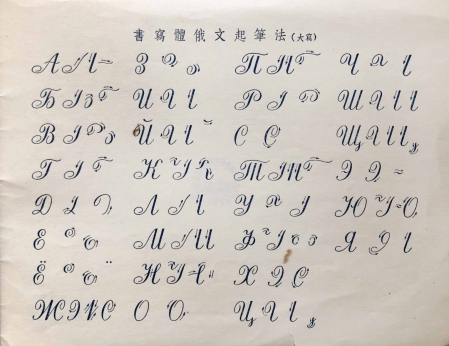 書寫體俄文起筆法(大寫)
А
Б
В
Г
Д
Е
Ё
Ж
З
И
Й
К
Л
М
Н
О
П
Р
С
Т
У
Ф
Х
Ц
Ч
Ш
Щ
Э
Ю
Я